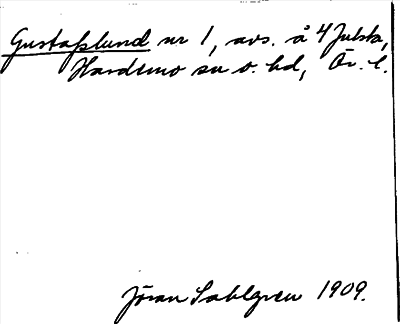 Gustafslund nr 1, avs. å 4 Julsta,
Hardemo sn o. hd, Ör. l.
Jöran Sahlgren 1909.